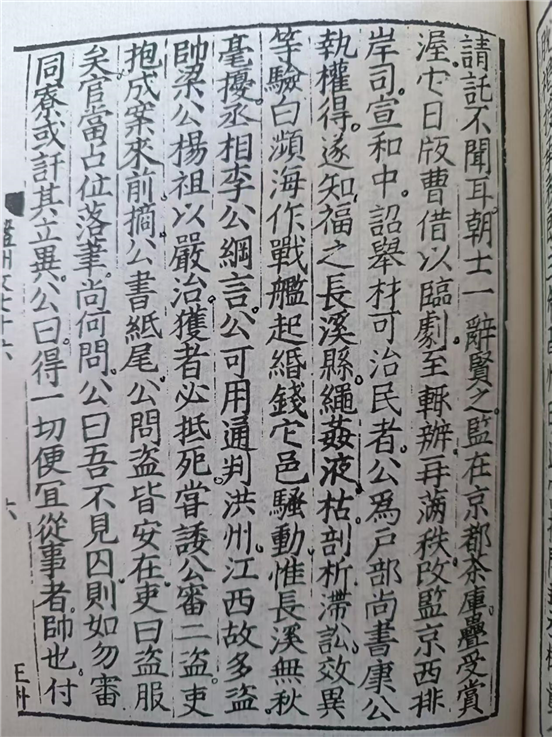 請託不聞耳朝士一辭賢之監在京都茶庫疊受賞
渥它日版曹借以臨劇至輒辦再滿秩改監京西排
岸司宣和中詔舉材可治民者公爲戶部尚書康公
執權得遂知福之長溪縣繩姦液枯剖析滯訟效異
等驗白瀕海作戰艦起緡錢它邑騷動惟長溪無秋
毫擾丞相李公綱言公可用通判洪州江西故多盜
帥梁公楊祖以嚴治獲者必抵死嘗諉公審二盜吏
抱成案來前摘公書紙尾公問盜皆安在吏曰盜服
矣官當占位落筆尚何問公曰吾不見囚則如勿審
同寮或訐其立異公曰得一切便宜從事者帥也付
盤州文七十六
六